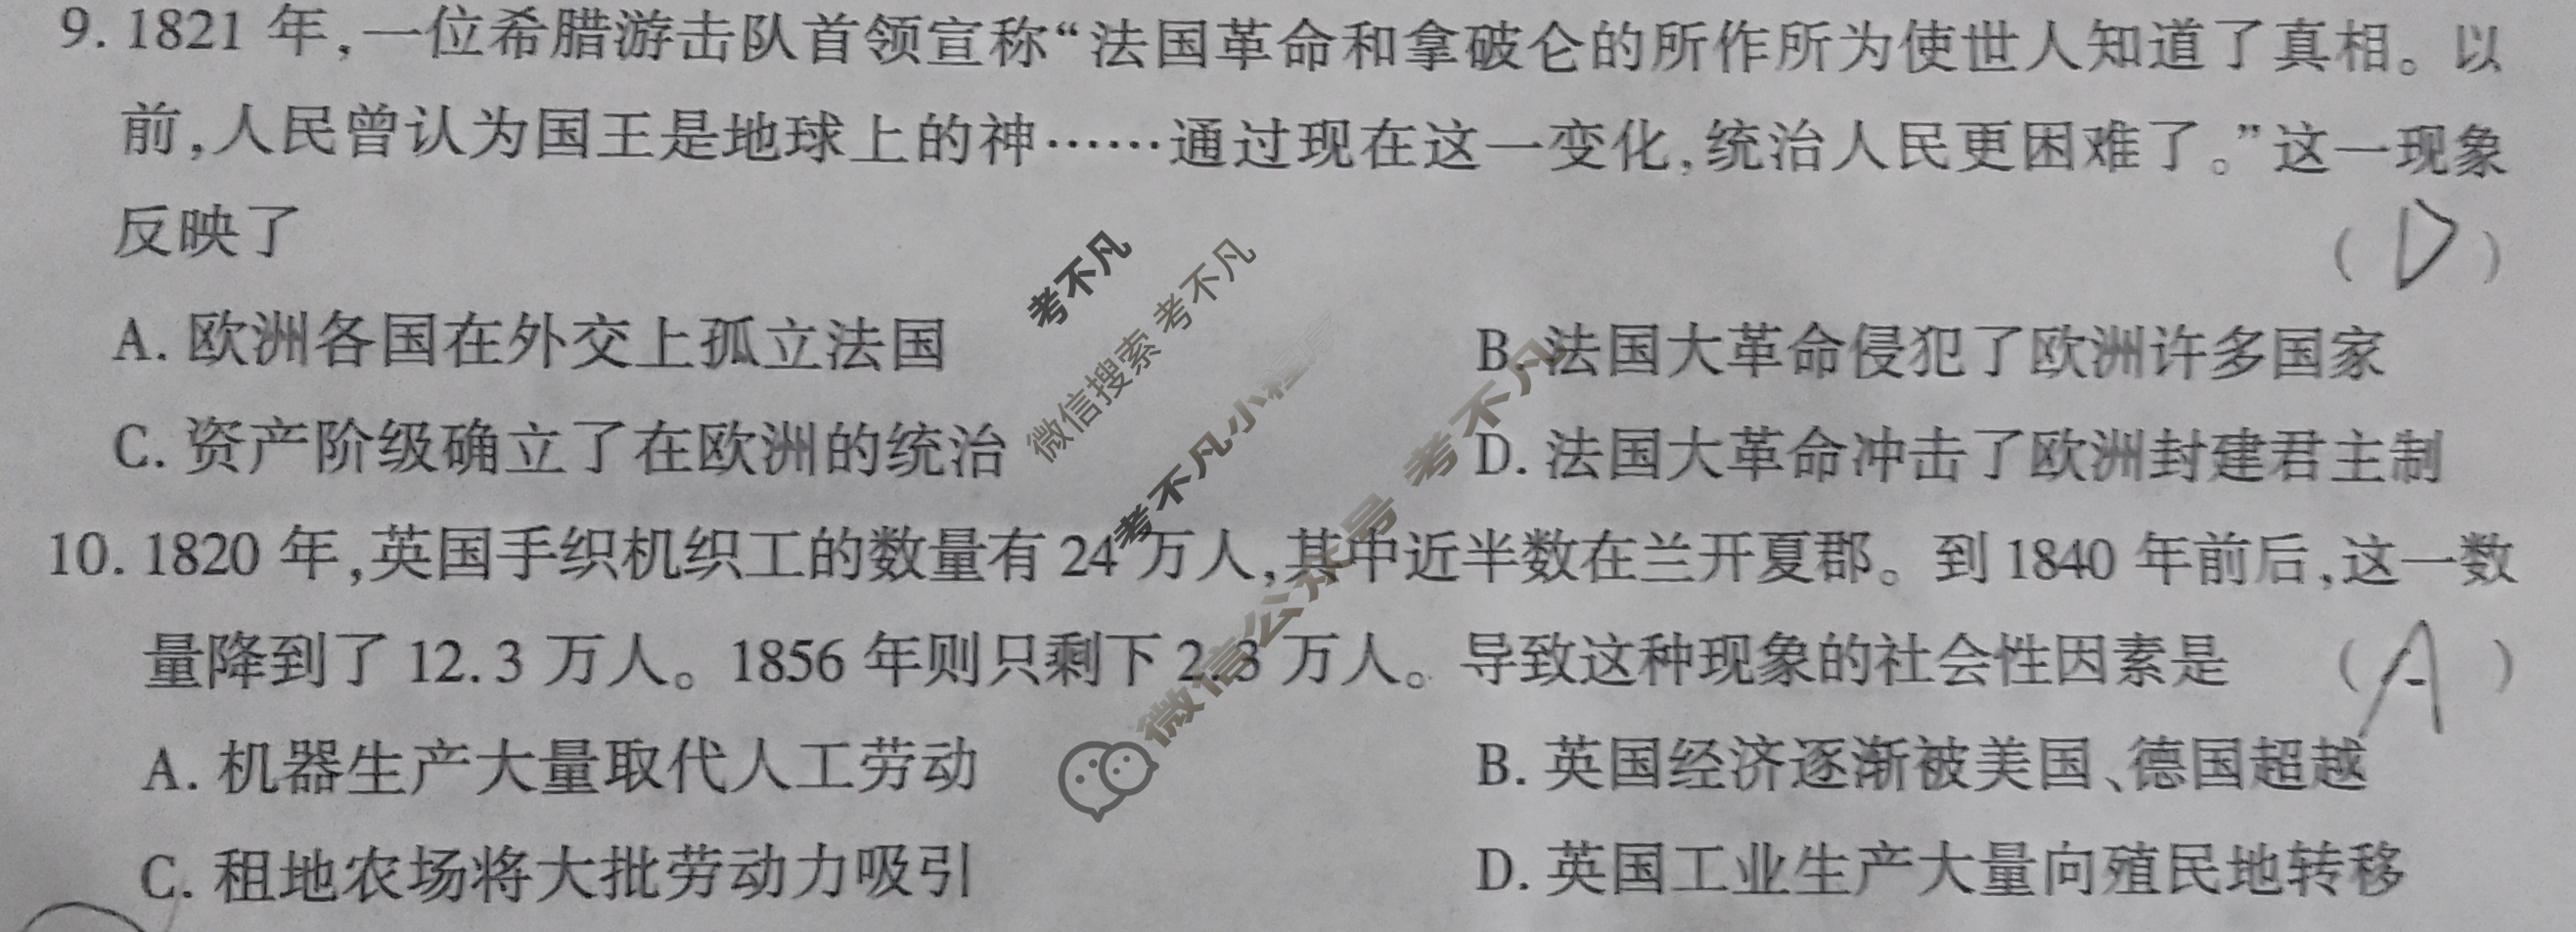 9. 1821 年,一位希腊游击队首领宣称“法国革命和拿破仑的所作所为使世人知道了真相。以
前,人民曾认为国王是地球上的神……通过现在这一变化,统治人民更困难了。”这一现象
反映了 ( D )
A. 欧洲各国在外交上孤立法国 B. 法国大革命侵犯了欧洲许多国家
C. 资产阶级确立了在欧洲的统治 D. 法国大革命冲击了欧洲封建君主制
10. 1820 年,英国手织机织工的数量有 24 万人,其中近半数在兰开夏郡。到 1840 年前后,这一数
量降到了 12.3 万人。1856 年则只剩下 2.3 万人。导致这种现象的社会性因素是 ( A )
A. 机器生产大量取代人工劳动 B. 英国经济逐渐被美国、德国超越
C. 租地农场将大批劳动力吸引 D. 英国工业生产大量向殖民地转移
考不凡
微信搜索 考不凡
考不凡小程序
微信公众号 考不凡